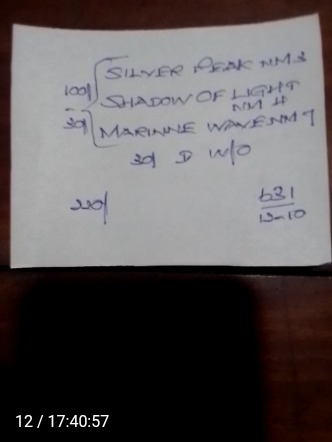 100/ SILVER PEAK NM 3
SHADOW OF LIGHT
NM 4
30/ MARINNE WAVE NM 7
30/ D W/O
220/
631
12-10
12 / 17:40:57